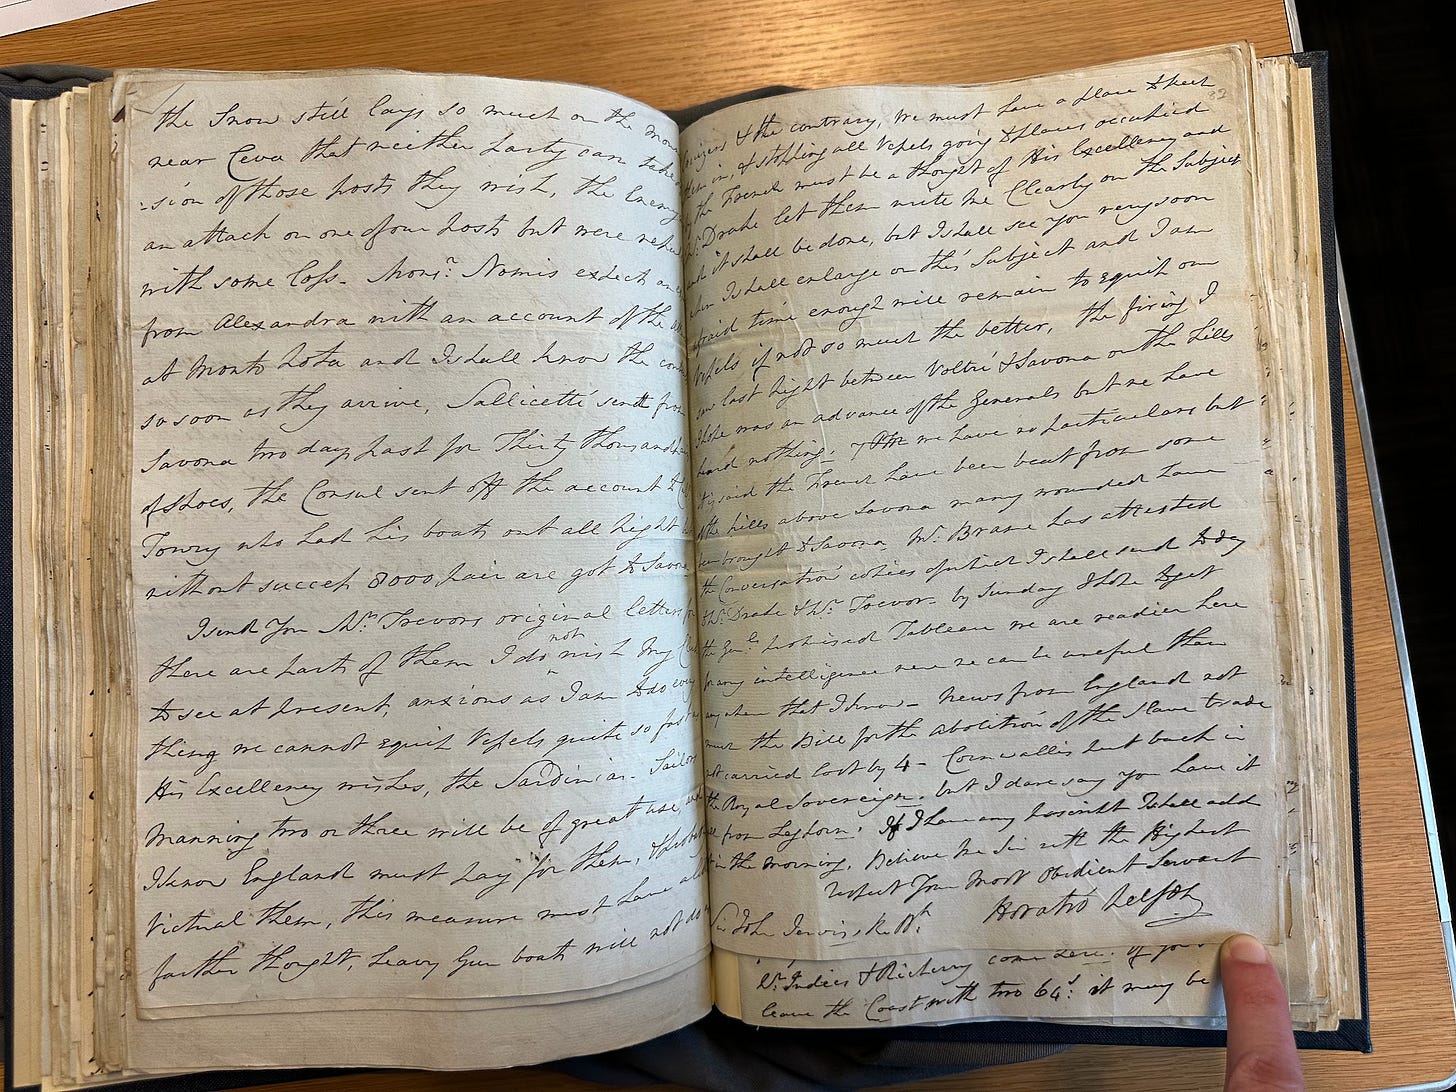 the Snow still lays so much on the moun
near Ceva that neither party can take
-sion of those posts they wish, the Enemy
an attack on one of our posts but were repu
with some loss. Mons.r Nomis expects an
from Alexandra with an account of the
at Monto Nota and I shall know the con
so soon as they arrive, Sallicetti sent from
Savona two days past for Thirty thousand
of shoes, the Consul sent off the account to
Towry who had his boats out all night
without success 8000 pair are got to Savona
I send You Mr. Trevors original letters
there are parts of them I do not wish my
to see at present, anxious as I am to do every
thing we cannot equip Vessels quite so fast
His Excellency wishes, the Sardinian Sailors
Manning two or three will be of great use,
I know England must pay for them, &
Victual them, this measure must have a
farther thought, heavy Gun boats will not do
& the contrary, we must have a place to keep
them in, of stopping all Vessels going to places occupied
by the French must be a thought of His Excellency and
Mr. Drake let them write me Clearly on the Subject
and it shall be done, but I shall see you very soon
when I shall enlarge on this Subject and I am
afraid time enough will remain to equip our
Vessels if not so much the better, the firing I
saw last night between Voltri & Savona on the hills
I hope was an advance of the Generals but we have
heard nothing. we have no particulars but
tis said the French have been beat from some
of the hills above Savona many wounded have
been brought to Savona, Mr. Brame has attested
the Conversation copies of which I shall send to day
to Mr. Drake & Mr. Trevor. by Sunday I hope to get
the Gen.ls promised Tableau we are readier here
for any intelligence were we can be useful than
any where that I know. News from England not
much the Bill for the abolition of the Slave trade
not carried lost by 4 - Cornwallis put back in
the Royal Sovereign. but I dare say you have it
all from Leghorn. If I have any I shall add
it in the morning, Believe me Sir with the Highest
respect Your Most Obedient Servant
Horatio Nelson
Sir John Jervis, K.B.
Wt. Indies & Richery come here. if you
leave the Coast with two 64s: it may be